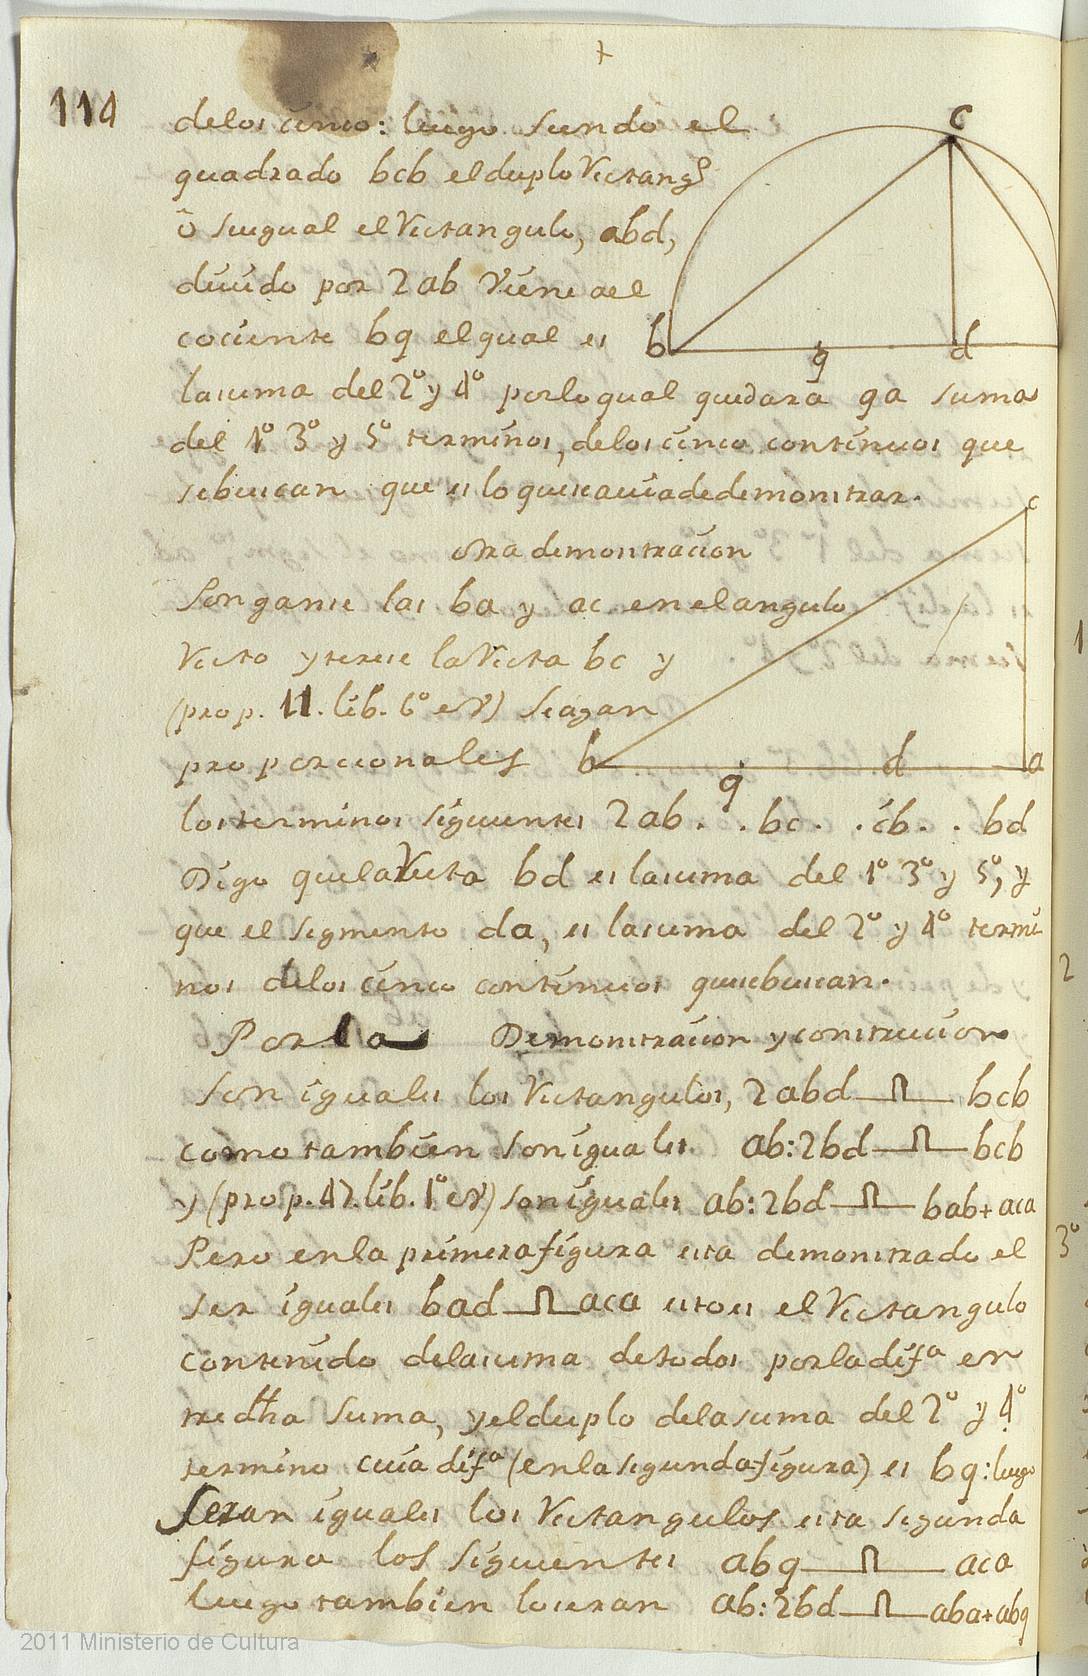 114
delos cinco: luego siendo el
quadrado bcb el duplo Rectangº
o su igual el Rectangulo, abd,
diuido por 2ab Viene a el
cociente bq el qual es
la suma del 2º y 4º por lo qual quedara qa suma
del 1º 3º y 5º terminos, delos cinco continuos que
se buscan que es lo que se auia de demonstrar.
c
b q d
otra demonstracion
Ponganse las ba y ac en el angulo
Recto y tirese la Recta bc y
(prop. 11. lib. 6º) se agan
proporcionales
c
b q d a
los terminos siguientes 2ab . . bc . . cb . . bd
Digo que la Recta bd es la suma del 1º 3º y 5º, y
que el segmento da, es la suma del 2º y 4º termi
nos delos cinco continuos que se buscan.
Por la Demonstracion y construcion
son iguales los Rectangulos, 2abd bcb
como tambien son iguales ab:2bd bcb
y (prop. 47. lib. 1º) son iguales ab:2bd bab+aca
Pero en la primera figura esta demonstrado el
ser iguales bad aca esto es el Rectangulo
contenido dela suma de todos por la difª en
tre dha suma, y el duplo dela suma del 2º y 4º
termino cuia difª (en la segunda figura) es bq: luego
seran iguales los Rectangulos esta segunda
figura los siguientes abq aca
luego tambien lo seran ab:2bd aba+abq
1
2
3º
2011 Ministerio de Cultura